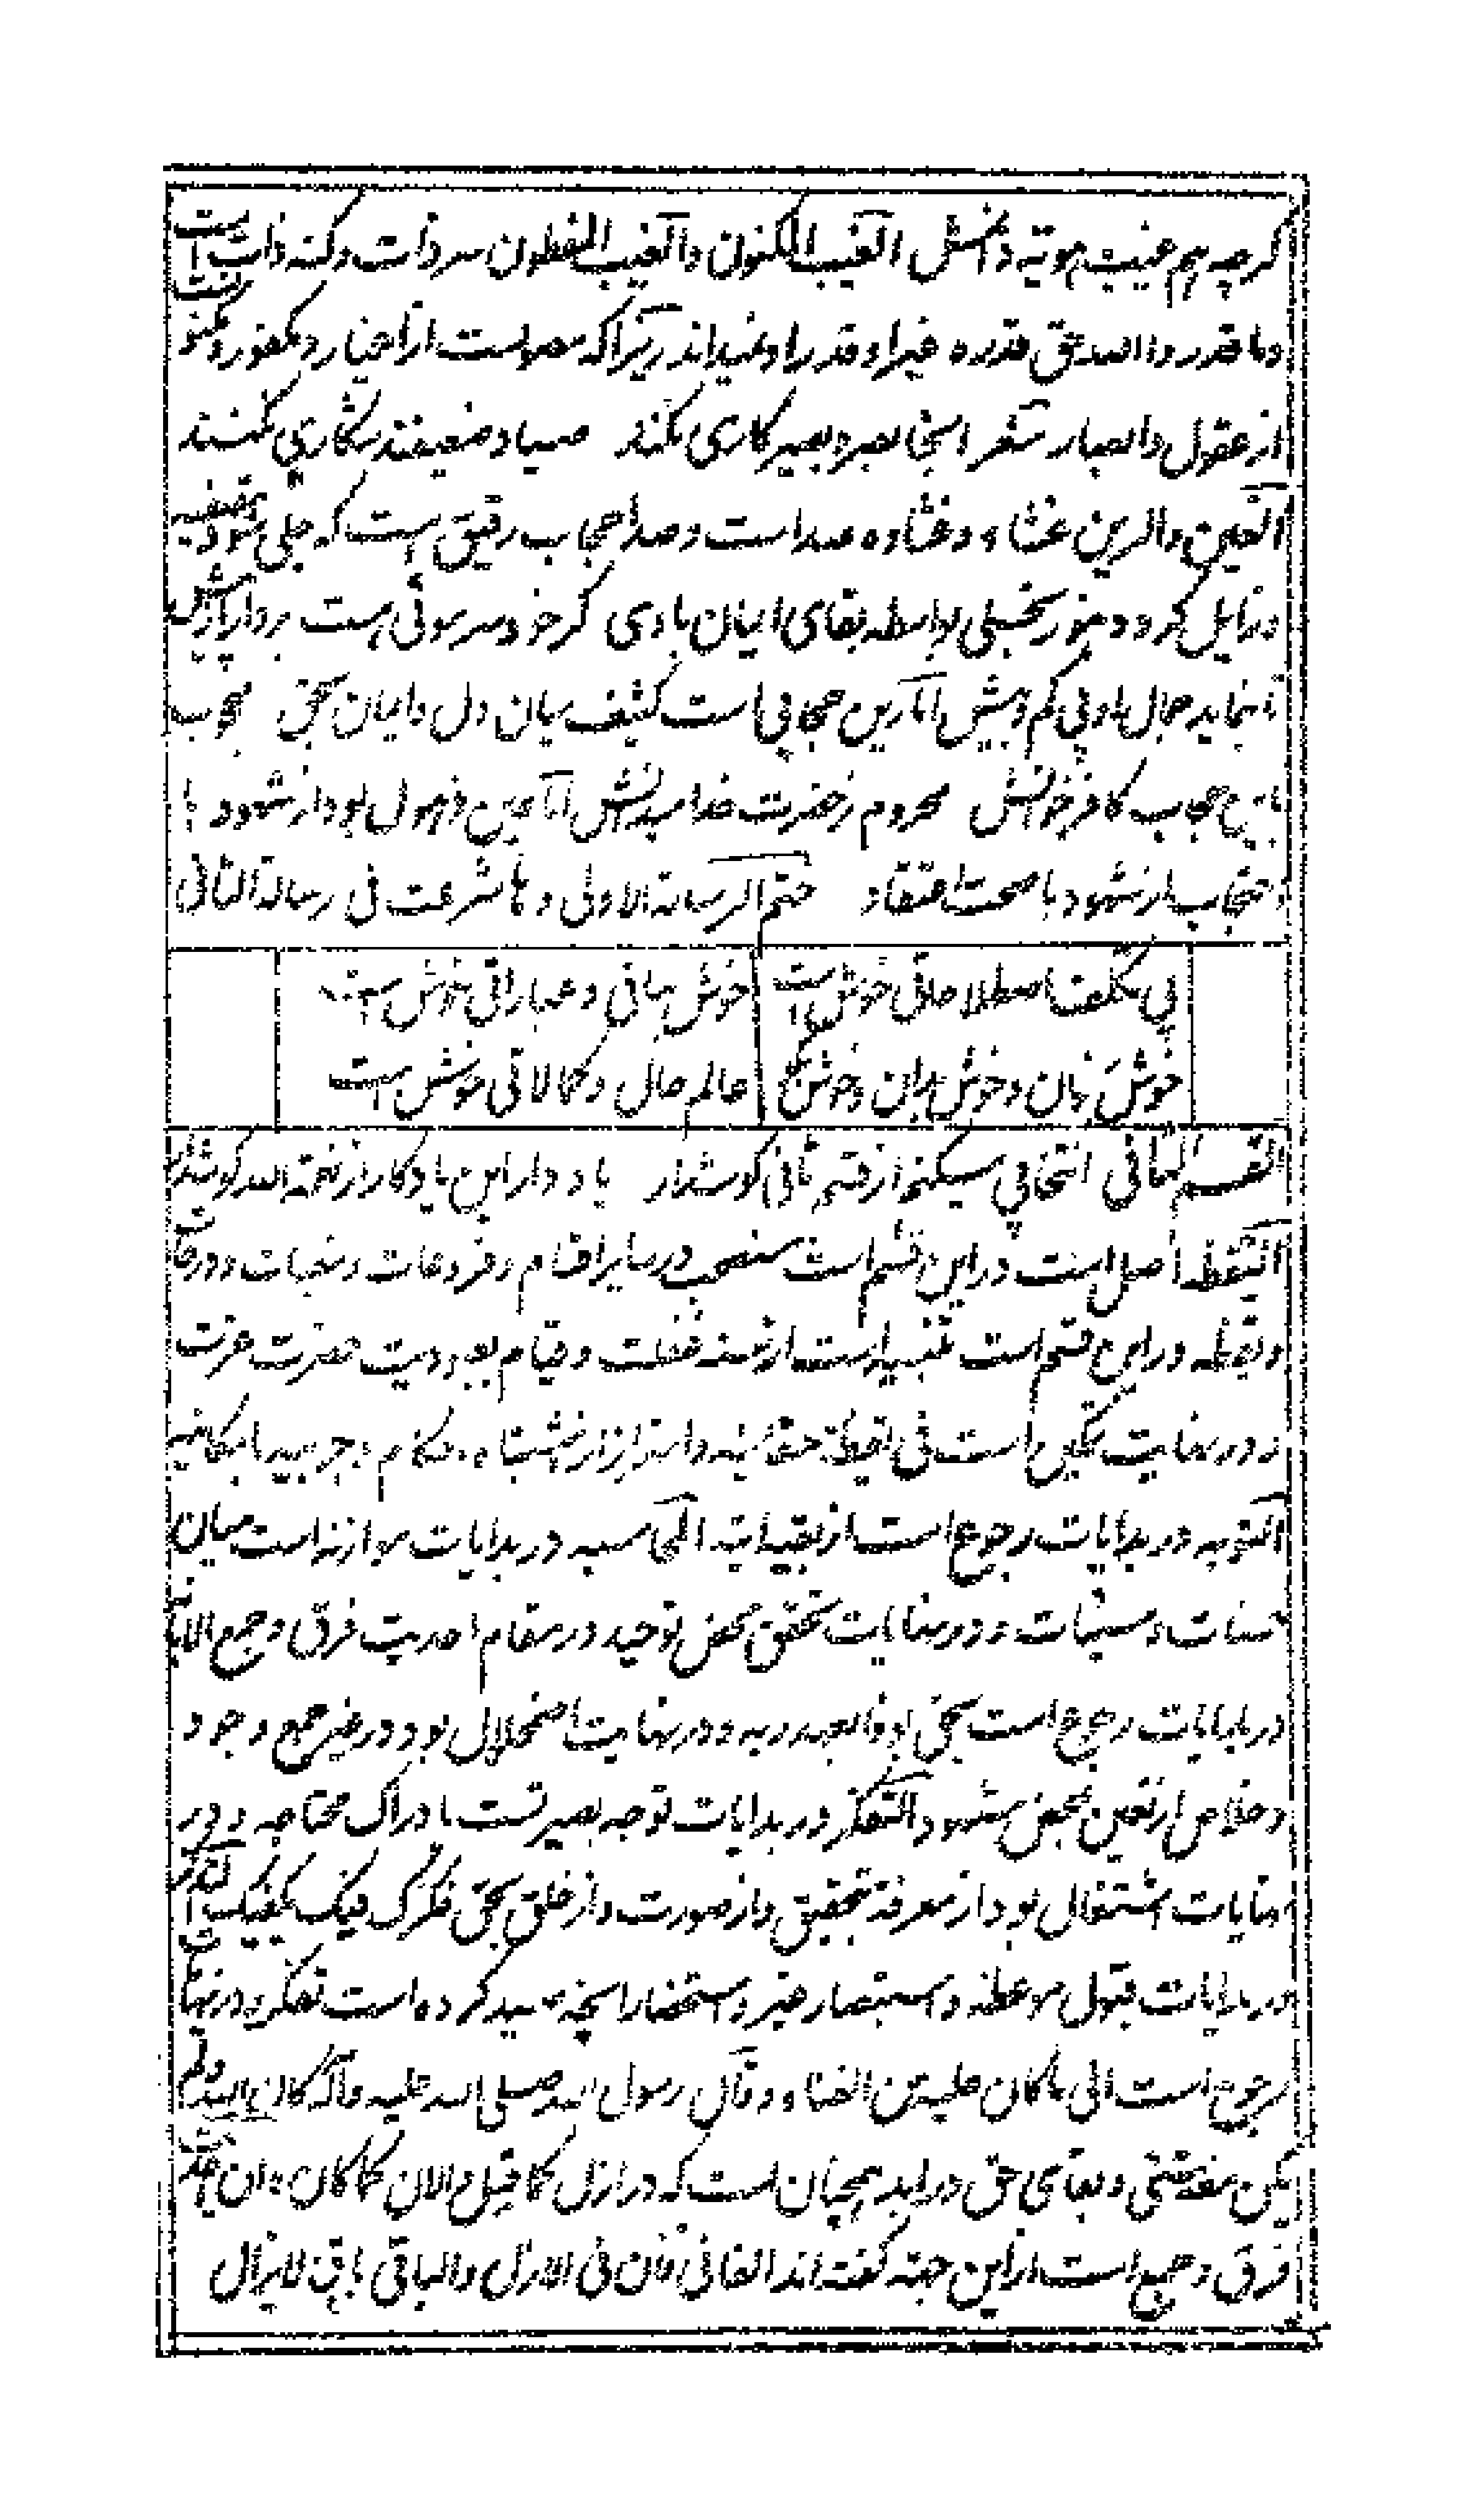 گرچه هم غیب هویة دانمش الغیب المکنون والغیب المظون سر ذات و کنه ذات است
وما قدروا الله حق قدره غیر او قدر او نمیداند زیرا که مصون است از اغیار و مکنونست
از عقول و ابصار شعر اینجا بصر و بصیر کاری نکند صیاد ضعیفند شکاری نکنند
الغین والرین غشاء و غشاوه صداست و صدا حجاب رقیق است که جلی شود بتصفیه
و زایل گردد بنور تجلی بواسطه بقای ایمان با وی گر خود سر موئی است بردار از پیش
تا بنماید جمال او بی کم و بیش اما رین حجابی است کثیف میان دل و ایمان بحق محجوب
باین حجاب کافر خوانش محروم ز حضرت خدا میدانش اما غین ذهول بود از شهود یا
احتجاب از شهود با صحت اعتقاد ختم الرسالة الاولی وما شرعت فی رسالة الثانی
بی تکلف اصطلاحاتی خوش است خوش بیانی و عباراتی خوش است
خوش زبان و خوش بیان و خوش عالم حال و کمالاتی خوش است
القسم الثانی انتخابی میکنم از قسم ثانی گوش دار یاد دار این یادگار از نعمة الله گوش دار
الیقظه اصل است در این قسم است منصحب در سایر اقسام و فروعات و شعبات و درجات
و یقظه در این قسم است تنبیه است از سنه غفلت و قیام بعبودیت حضرت عزت
و در نهایت تمکین است فی یقظة حقانیه و احتراز از اشتباه احکام وجوبیه بامکانیه
التوبه در بدایات رجوع است از بقیه انیه المحاسبه در بدایات موازنه است میان
حسنات و سیئات و در نهایات تحقق محض توحید در مقام احدیت فرق و جمع الانابة
در بدایات رجوع است بحق بوفا بعهد ربه و در نهایت اضمحلال بود در عین جمع وجود
و خلاص از تعین بمحض شهود التفکر در بدایات توجه بصیرتست بادراک محتاجه و در
نهایات اشتغال بود از معرفة بتحقیق و از صورت و از خلق بحق فکرک فیک یکفیک التذکر
در بدایات قبول موعظه و استبصار خیر و استحضار انچه تمهید کرده است تفکر و در نهایات
رجوع است الی ما کان علیه من الفناء و قال رسول الله صلی الله علیه وآله کان الله ولم
یکن معه شیٔ و بقای حق در ابد همچنان است که در ازل کما قیل والان کما کان و ان
فرق و جمع است از این جهة گفته اند الفانی فان فی الازل والباقی باق لا یزال